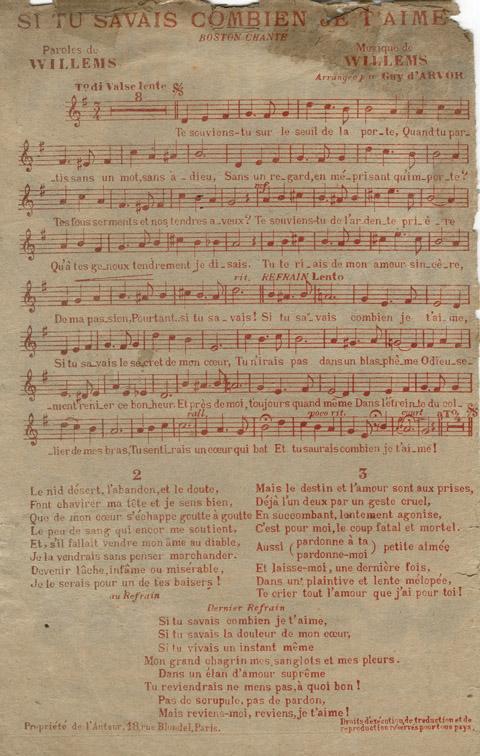 SI TU SAVAIS COMBIEN JE T'AIME
BOSTON CHANTÉ
Paroles de
WILLEMS
Musique de
WILLEMS
Arrangée par Guy d'ARVOR
To di Valse lente
8
Te souviens-tu sur le seuil de la por_te, Quand tu par_
_tis sans un mot, sans a_dieu, Sans un re_gard, en mé_prisant qu'im_por_te?
mf
Tes fous serments et nos tendres a_veux? Te souviens-tu de l'ar_den_te pri_è_re
Qu'à tes ge_noux tendrement je di_sais. Tu te ri_ais de mon amour sin_cè_re,
rit. REFRAIN Lento
De ma pas_sion, Pourtant.. si tu sa_vais! Si tu sa_vais combien je t'ai_me,
Si tu sa_vais le sécret de mon cœur, Tu n'irais pas dans un blas_phè_me Odieu_se_
_ment reni_er ce bon_heur. Et près de moi, toujours quand même Dans l'étrein_te du col_
rall. poco rit. court a TO.
_lier de mes bras, Tu senti_rais un cœur qui bat Et tu saurais combien je t'ai_me!
2
Le nid désert, l'abandon, et le doute,
Font chavirer ma tête et je sens bien,
Que de mon cœur s'échappe goutte à goutte
Le peu de sang qui encor me soutient,
Et, s'il fallait vendre mon âme au diable,
Je la vendrais sans penser marchander.
Devenir lâche, infâme ou misérable,
Je le serais pour un de tes baisers!
au Refrain
3
Mais le destin et l'amour sont aux prises,
Déjà l'un deux par un geste cruel,
En succombant, lentement agonise,
C'est pour moi, le coup fatal et mortel.
Aussi ( pardonne à ta
pardonne-moi ) petite aimée
Et laisse-moi, une dernière fois,
Dans un' plaintive et lente mélopée,
Te crier tout l'amour que j'ai pour toi!
Dernier Refrain
Si tu savais combien je t'aime,
Si tu savais la douleur de mon cœur,
Si tu vivais un instant même
Mon grand chagrin mes, sanglots et mes pleurs.
Dans un élan d'amour suprême
Tu reviendrais ne mens pas, à quoi bon!
Pas de scrupule, pas de pardon,
Mais reviens-moi, reviens, je t'aime!
Propriété de l'Auteur, 18, rue Blondel, Paris.
Droits d'exécution, de traduction et de
reproduction réservés pour tous pays.